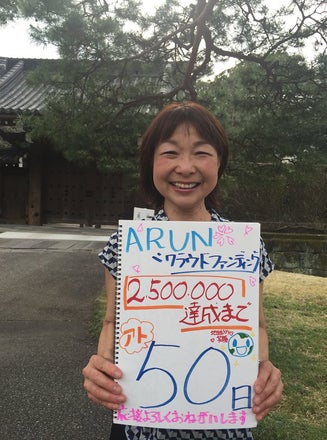 ARUN
クラウトファンディーク
2,500,000
達成まで
アト
50日
応援よろしくおねがいします